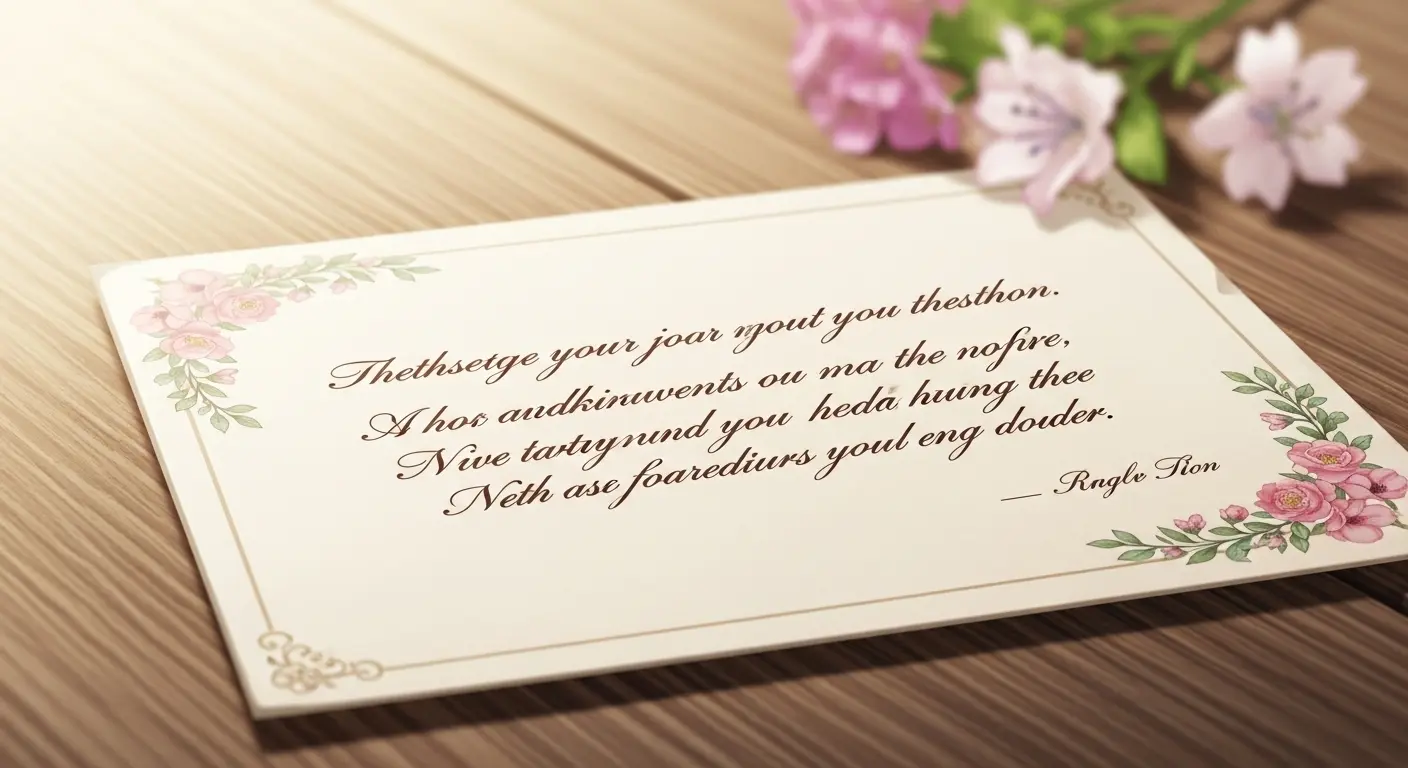 Thethsetge your joar rgout you thesthon.
A hos audkinuwents ou ma the nofire,
Nive tavtiynund you heda huung thee
Neth ase foarediurs youl eng douder.
— Rngle Tion